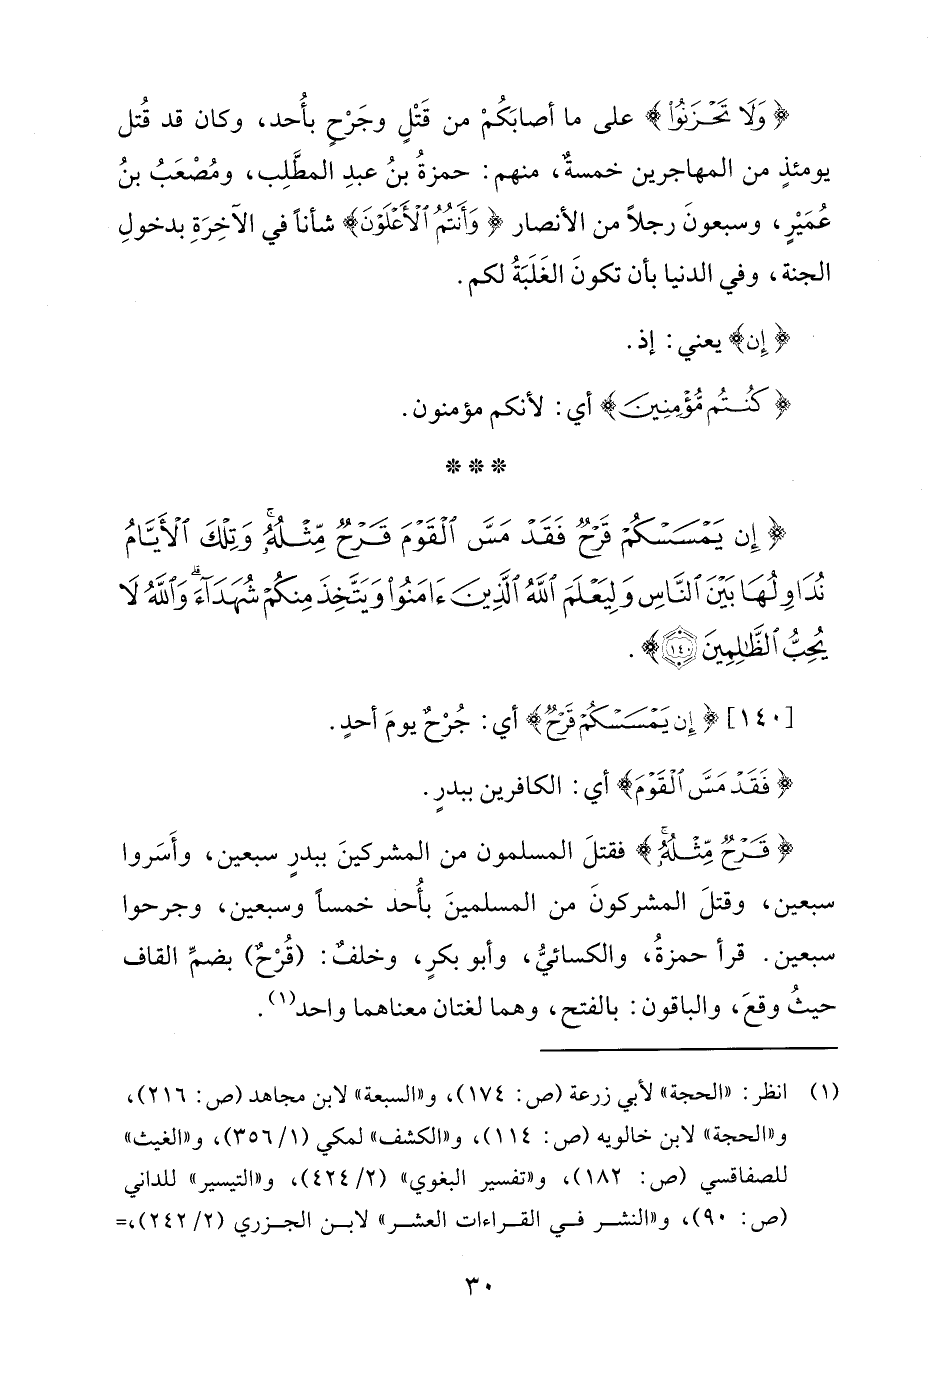 ﴿ وَلَا تَحْزَنُوا۟ ﴾ على ما أصابَكُمْ من قَتْلٍ وجَرْحٍ بأُحد، وكان قد قُتل
يومئذٍ من المهاجرين خمسةٌ، منهم: حمزةُ بنُ عبدِ المطَّلِب، ومُصْعَبُ بنُ
عُمَيْرٍ، وسبعونَ رجلاً من الأنصار ﴿ وَأَنتُمُ ٱلْأَعْلَوْنَ﴾ شأناً في الآخِرَةِ بدخولِ
الجنة، وفي الدنيا بأن تكونَ الغَلَبَةُ لكم.
﴿ إِن﴾ يعني: إذ.
﴿ كُنتُم مُّؤْمِنِينَ﴾ أي: لأنكم مؤمنون.
***
﴿ إِن يَمْسَسْكُمْ قَرْحٌ فَقَدْ مَسَّ ٱلْقَوْمَ قَرْحٌ مِّثْلُهُۥ ۚ وَتِلْكَ ٱلْأَيَّامُ
نُدَاوِلُهَا بَيْنَ ٱلنَّاسِ وَلِيَعْلَمَ ٱللَّهُ ٱلَّذِينَ ءَامَنُوا۟ وَيَتَّخِذَ مِنكُمْ شُهَدَآءَ ۗ وَٱللَّهُ لَا
يُحِبُّ ٱلظَّـٰلِمِينَ ١٤٠﴾.
[١٤٠] ﴿ إِن يَمْسَسْكُمْ قَرْحٌ﴾ أي: جُرْحٌ يومَ أحدٍ.
﴿ فَقَدْ مَسَّ ٱلْقَوْمَ﴾ أي: الكافرين ببدرٍ.
﴿ قَرْحٌ مِّثْلُهُۥ ۚ﴾ فقتلَ المسلمون من المشركينَ ببدرٍ سبعين، وأَسَروا
سبعين، وقتلَ المشركونَ من المسلمينَ بأُحد خمساً وسبعين، وجرحوا
سبعين. قرأ حمزةُ، والكسائيُّ، وأبو بكرٍ، وخلفٌ: (قُرْحٌ) بضمِّ القاف
حيثُ وقعَ، والباقون: بالفتح، وهما لغتان معناهما واحد(١).
(١) انظر: «الحجة» لأبي زرعة (ص: ١٧٤)، و«السبعة» لابن مجاهد (ص: ٢١٦)،
و«الحجة» لابن خالويه (ص: ١١٤)، و«الكشف» لمكي (١/ ٣٥٦)، و«الغيث»
للصفاقسي (ص: ١٨٢)، و«تفسير البغوي» (٢/ ٤٢٤)، و«التيسير» للداني
(ص: ٩٠)، و«النشر في القراءات العشر» لابن الجزري (٢/ ٢٤٢)،=
٣٠